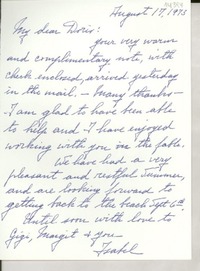 August 17, 1953
My dear Doris:
your very warm
and complimentary note, with
check enclosed, arrived yesterday
in the mail. – Many thanks –
I am glad to have been able
to help and I have enjoyed
working with you in the
We have had a very
pleasant and restful summer,
and are looking forward to
getting back to the beach Sept 6th.
Until soon with love to
Gigi, Margit & you
Isabel